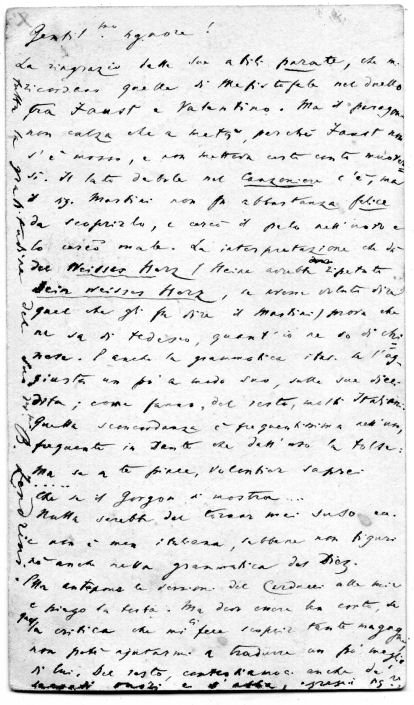 Gentil.mo Signore!
La ringrazio delle sue abili parate, che mi
ricordano quella di Mefistofele nel duello
tra Faust e Valentino. Ma il paragone
non calza che a metà, perchè Faust non
s'è mosso, e non metteva certo conto
Il lato debole nel Canzoniere c'è, ma
il sig. Mastini non fu abbastanza felice
da scoprirlo, e cercò il pelo nell'uovo e
lo cercò male. La interpretazione che dà
del Weisses Herz (Heine avrebbe ripetuto
Dein weisses Herz, se avesse voluto dire
quel che gli fa dire il Mastini) prova che
ne sa di tedesco, quant'io ne so di chi-
nese. E anche la grammatica ital. se l'ag-
giusta un po' a modo suo, sulle sue
come fanno, del resto, molti Italiani.
Quella sconcordanza è frequentissima nell'uso,
frequente in Dante che dall'uso la tolse:
Ma se a te piace, volentier saprei
.....
Chè se il Gorgon si mostra ...
Nulla sarebbe del tornar mai suso ec.
e non è men italiana, sebbene non figuri
nè anche nella grammatica del Diez.
Ella antepone le versioni del Carducci alle mie
e piego la testa. Ma devo ancora
la critica che mi fece scoprir tante magagne
non potè ajutarmi a tradurre un po' meglio
di lui. Del resto, contentiamoci anche de'
e s'abbia, egregio sig.re
tutta la gratitudine del suo dev.mo B. Zendrini.